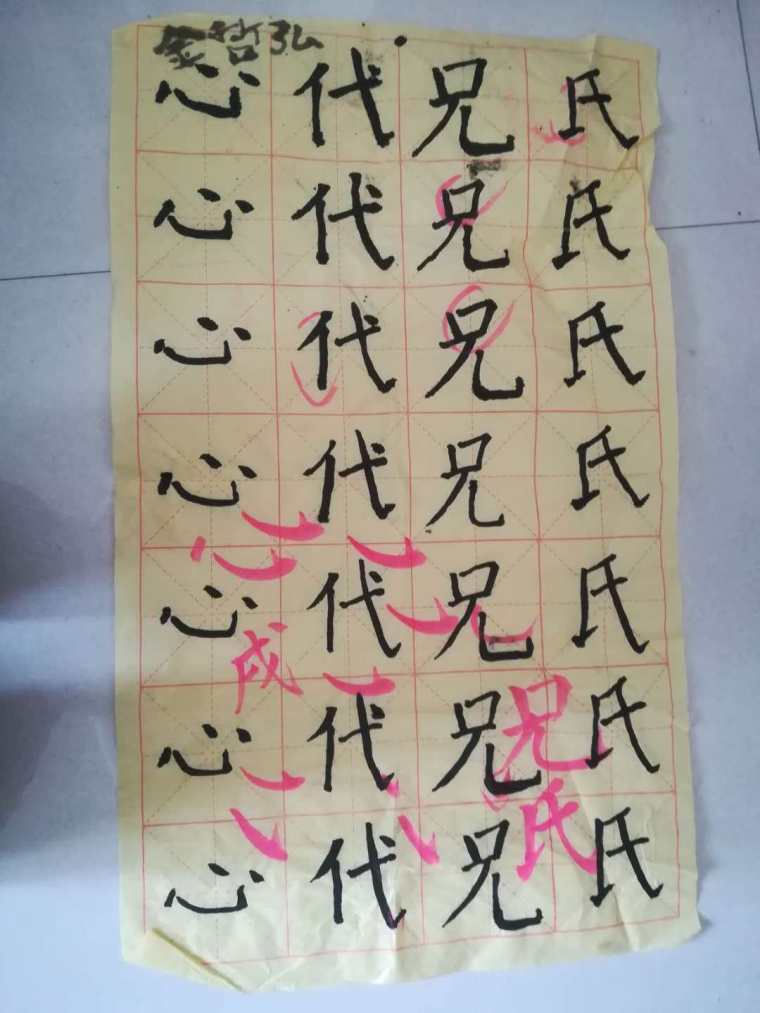 哲弘
心 代 兄 氏
心 代 兄 氏
心 代 兄 氏
心 代 兄 氏
心 代 兄 氏
成
兄
心 代 兄 氏
氏
心 代 兄 氏